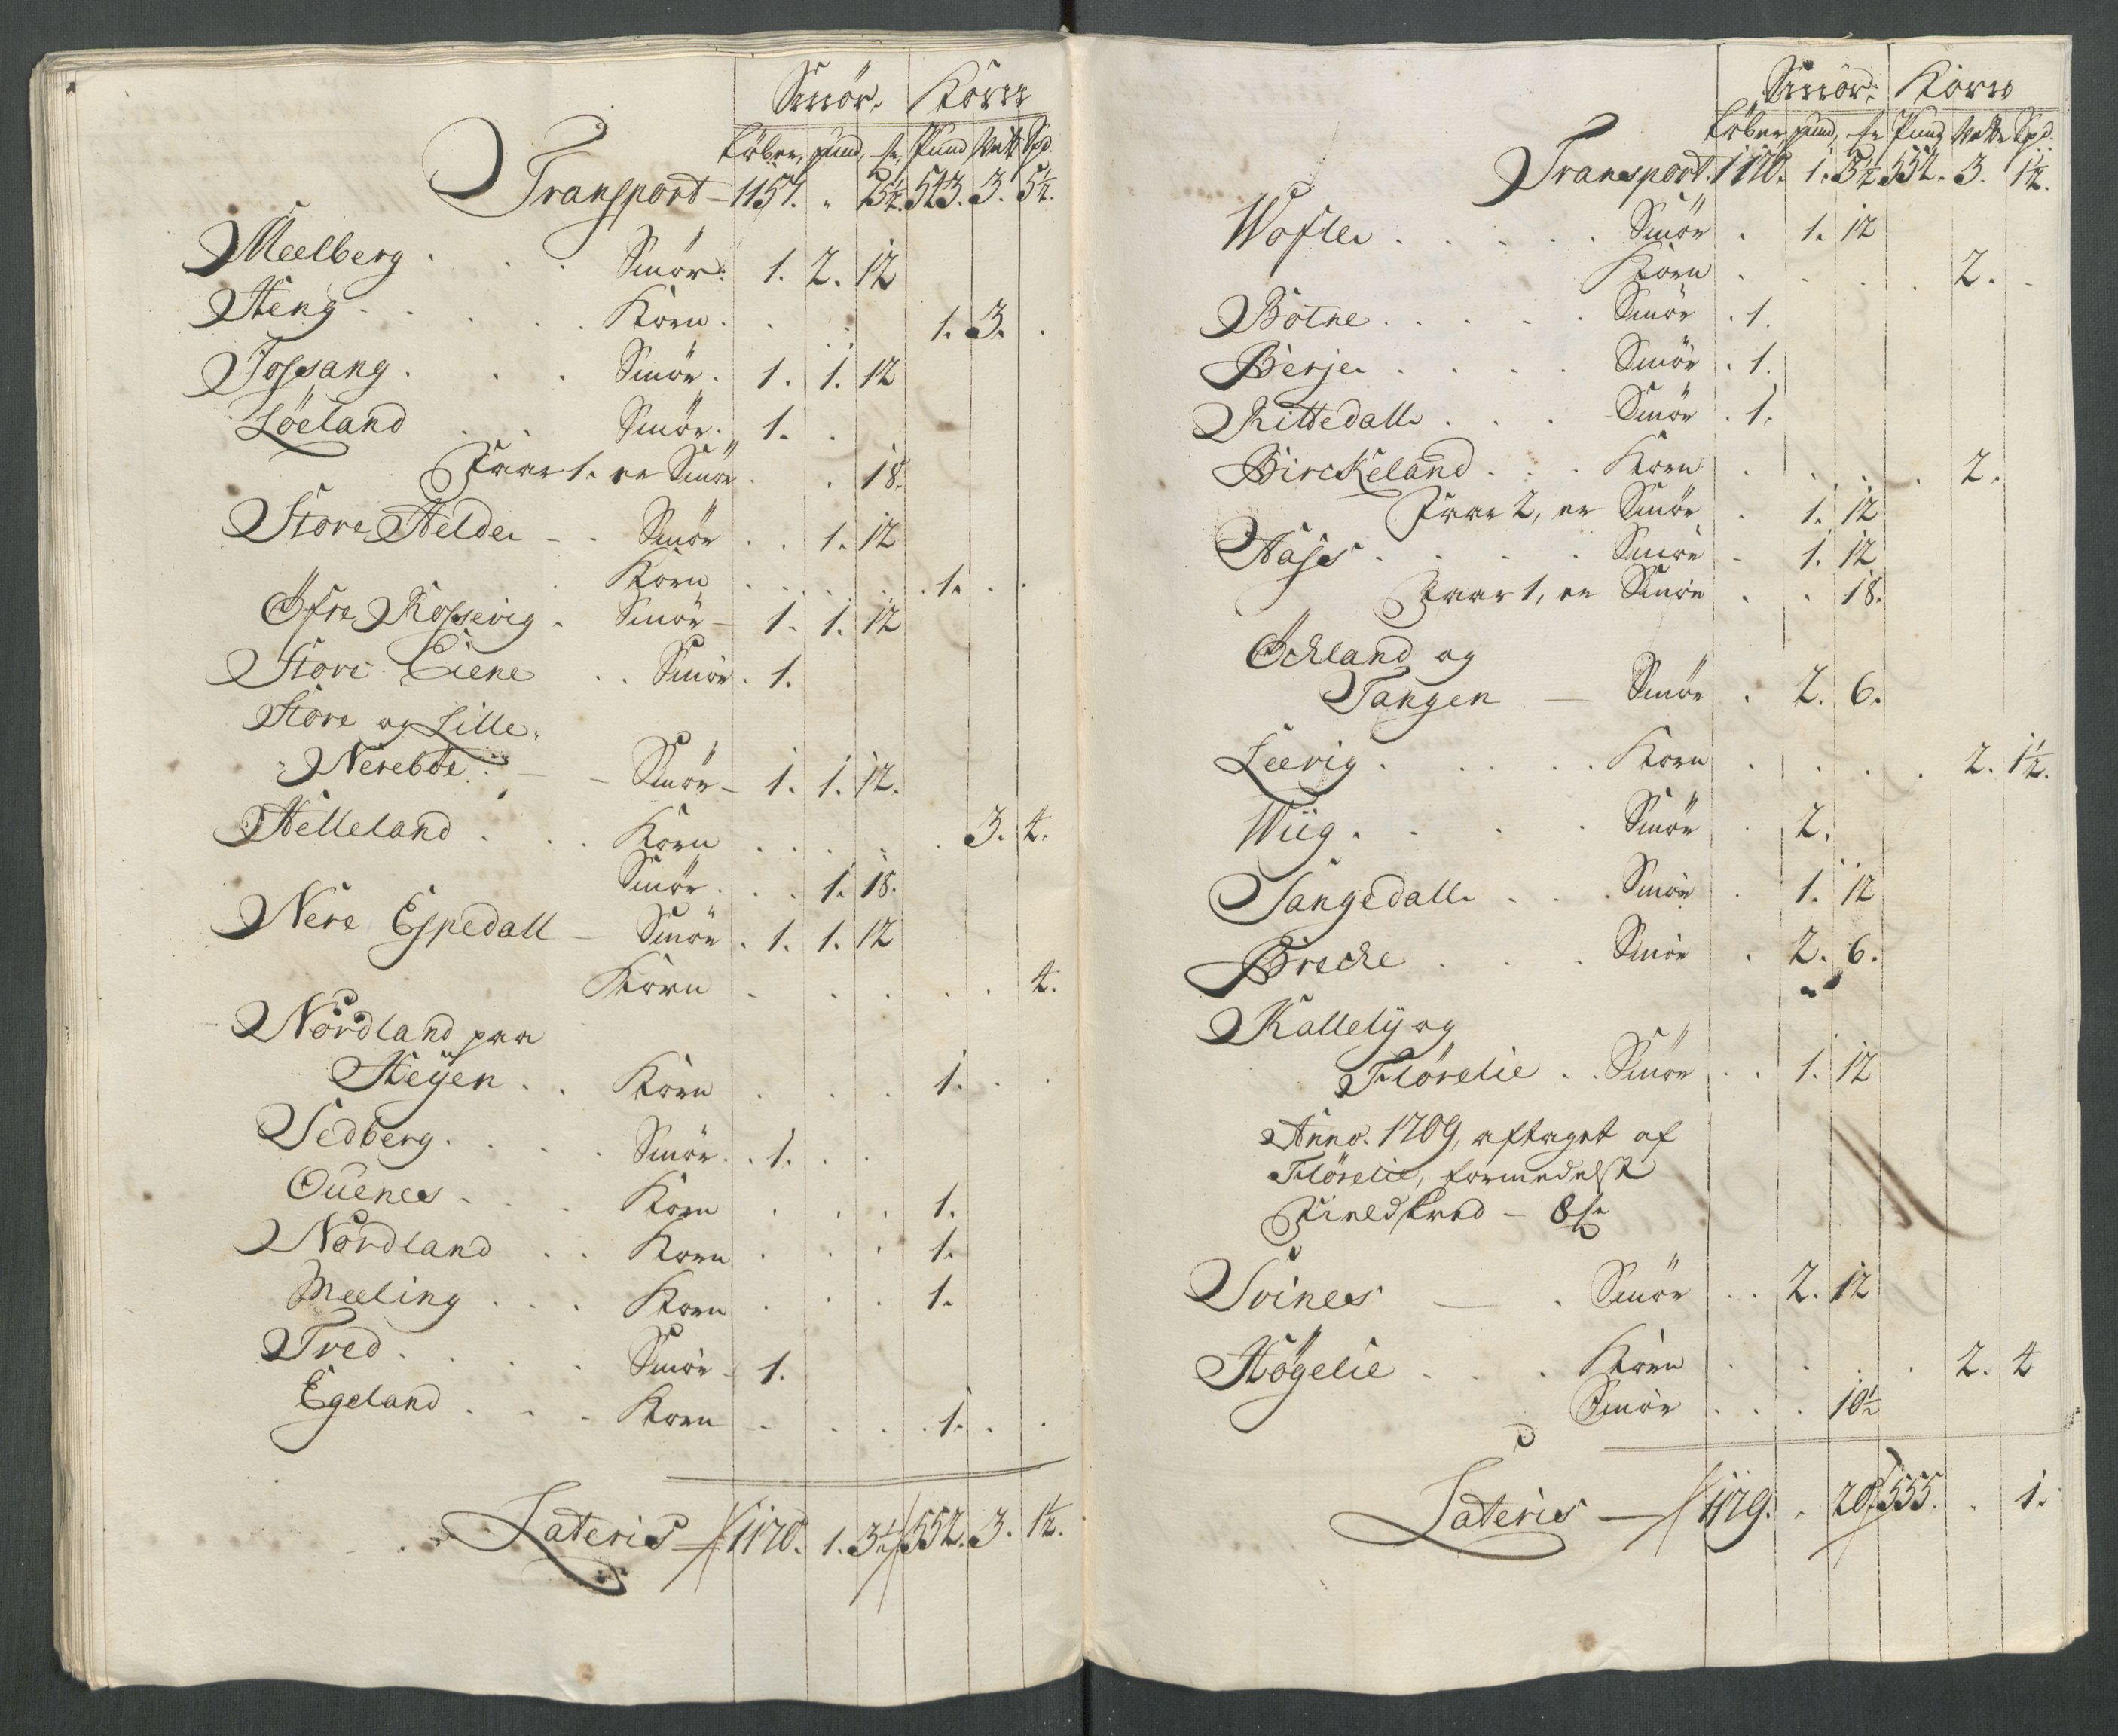 Smör. Korn
Löber, pund, ℔, Pund Vett Spd.
Transport – 1157. „ 15½. 543. 3. 5½.
Meelberg . . . Smör. 1. 2. 12
Heng . . . . . Korn . . . 1. 3. .
Fossang . . . Smör. 1. 1. 12
Löeland . . Smör. 1. .
Faar 1. er Smör . . 18.
Store Helde – . Smör . . 1. 12
Korn . . . . . 1. . .
Öfre Rossevig . Smör – 1. 1. 12
Store Eiene . . Smör . 1.
Store og Lille
Nereböe . – – Smör – 1. 1. 12.
Helleland . . . Korn . . . . . 3. 4.
Smör . . . 1. 18.
Nere Espedall – Smör . 1. 1. 12
Korn . . . . . . 4.
Nordland paa
Heÿen . . Korn . . . 1. . .
Sedberg . . . . Smör . . 1. . .
Ouenes . . . Korn . . . 1.
Nordland . . Korn . . . 1.
Meeling . . . Korn . . . 1.
Tved . . . . Smör – 1.
Egeland . . . Korn . . . . 1. . .
Lateris – 1170. 1. 3½ 552. 3. 1½.
Smör. Korn
Löber, pund, ℔ Pund Vette Spd.
Transport. 1170. 1. 3½ 552. 3. 1½.
Wosle . . . . . Smör . 1. 12
Korn . . . . . 2. .
Botne . . . . . Smör . 1.
Berje . . . . Smör . 1.
Rittedall . . . Smör . 1.
Birckeland . . . Korn . . . . 2.
Faar 2, er Smör . 1. 12
Hass . . . . Smör – 1. 12
Faar 1, er Smör . . 18.
Öckland og
Tangen – Smör . 2. 6.
Leevig . . . . . Korn . . . . . 2. 1½.
Wiig . . . . Smör . 2.
Sangedall . . . Smör . 1. 12
Brecke . . . Smör . 2. 6.
Kallelÿ og
Flörelie . . Smör . . 1. 12
Anno. 1709, aftaget af
Flörelie, formedelst
Fieldskred – 8 ℔
Svines – . Smör . . 2. 12
Högelie . . . Korn . . . . 2. 4
Smör . . . 10½
Lateris – 1179. . 20 555. . 1.